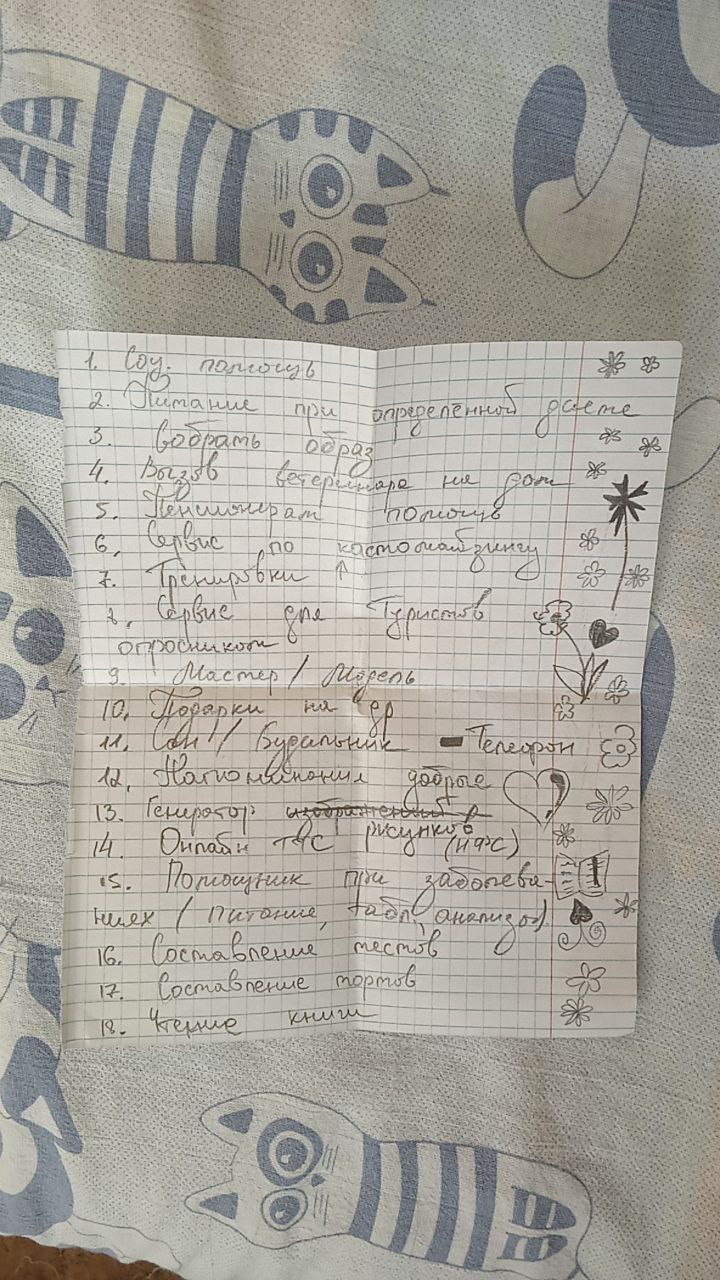 1. Соц. помощь
2. Питание при определённой диете
3. Собрать образ
4. Вызов ветеринара на дом
5. Пенсионерам помощь
6. Сервис по кастомайзингу
7. Тренировки ↑
8. Сервис для Туристов
опросником
9. Мастер / Модель
10. Подарки на др
11. Сон / Будильник - Телефон
12. Напоминания добрые
13. Генератор изображений
рисунков
14. Онлайн (НФС)
15. Помощник при заболева-
ниях (питание, табл., анализы)
16. Составление тестов
17. Составление тортов
18. Чтение книги